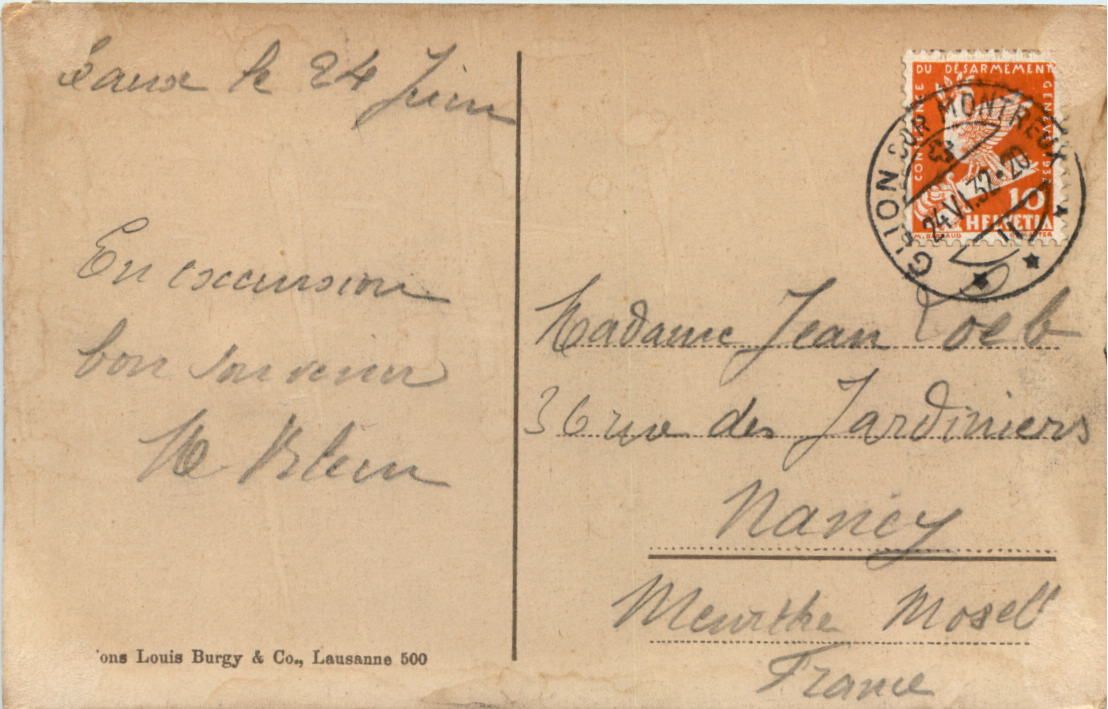 le 24 Juin
En excursion
bon souvenir
M Klein
ons Louis Burgy & Co., Lausanne 500
CONFERENCE DU DESARMEMENT GENEVE 1932
10
HELVETIA
GLION SUR MONTREUX
24.VI.32-20
Madame Jean Loeb
36 rue des Jardiniers
Nancy
Meurthe Mosell
France